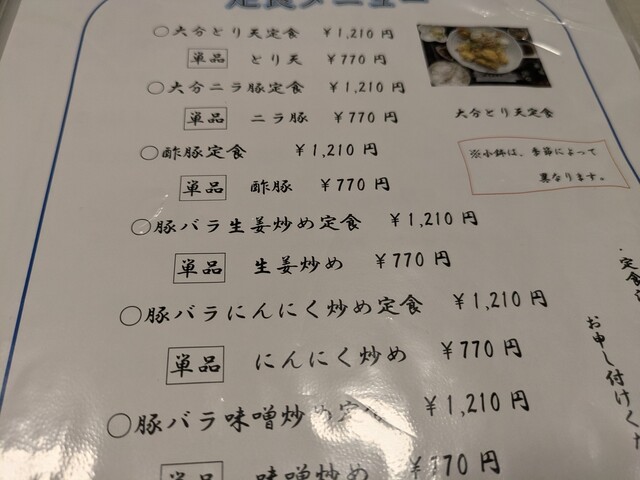 定食メニュー
○大分とり天定食 ￥1,210 円
単品 とり天 ￥770 円
○大分ニラ豚定食 ￥1,210 円
単品 ニラ豚 ￥770 円
○酢豚定食 ￥1,210 円
単品 酢豚 ￥770 円
○豚バラ生姜炒め定食 ￥1,210 円
単品 生姜炒め ￥770 円
○豚バラにんにく炒め定食 ￥1,210 円
単品 にんにく炒め ￥770 円
○豚バラ味噌炒め定食 ￥1,210 円
単品 味噌炒め ￥770 円
大分とり天定食
※小鉢は、季節によって
異なります。
・定食
お申し付けくだ